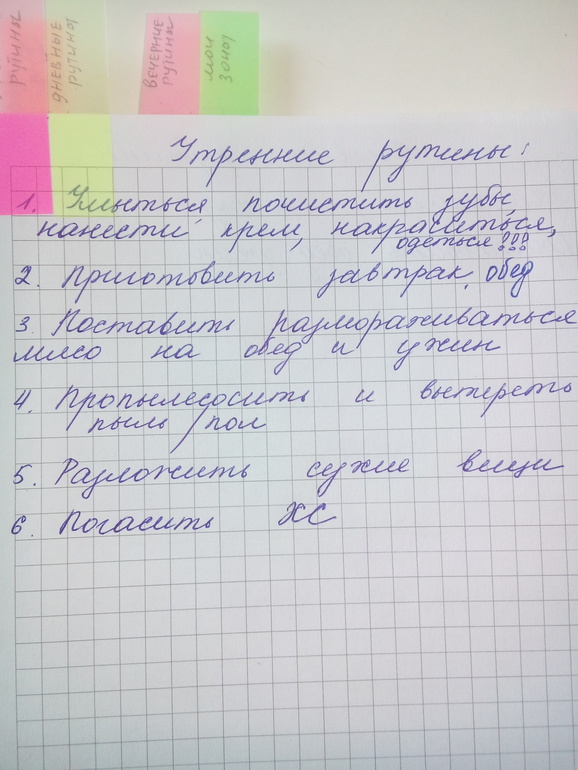 рутины
дневные
рутины
вечерние
рутины
мои
зоны
Утренние рутины:
1. Умыться, почистить зубы,
нанести крем, накраситься,
одеться !!!
2. Приготовить завтрак, обед
3. Поставить размораживаться
мясо на обед и ужин
4. Пропылесосить и вытереть
пыль/пол
5. Разложить сухие вещи
6. Погасить ХС